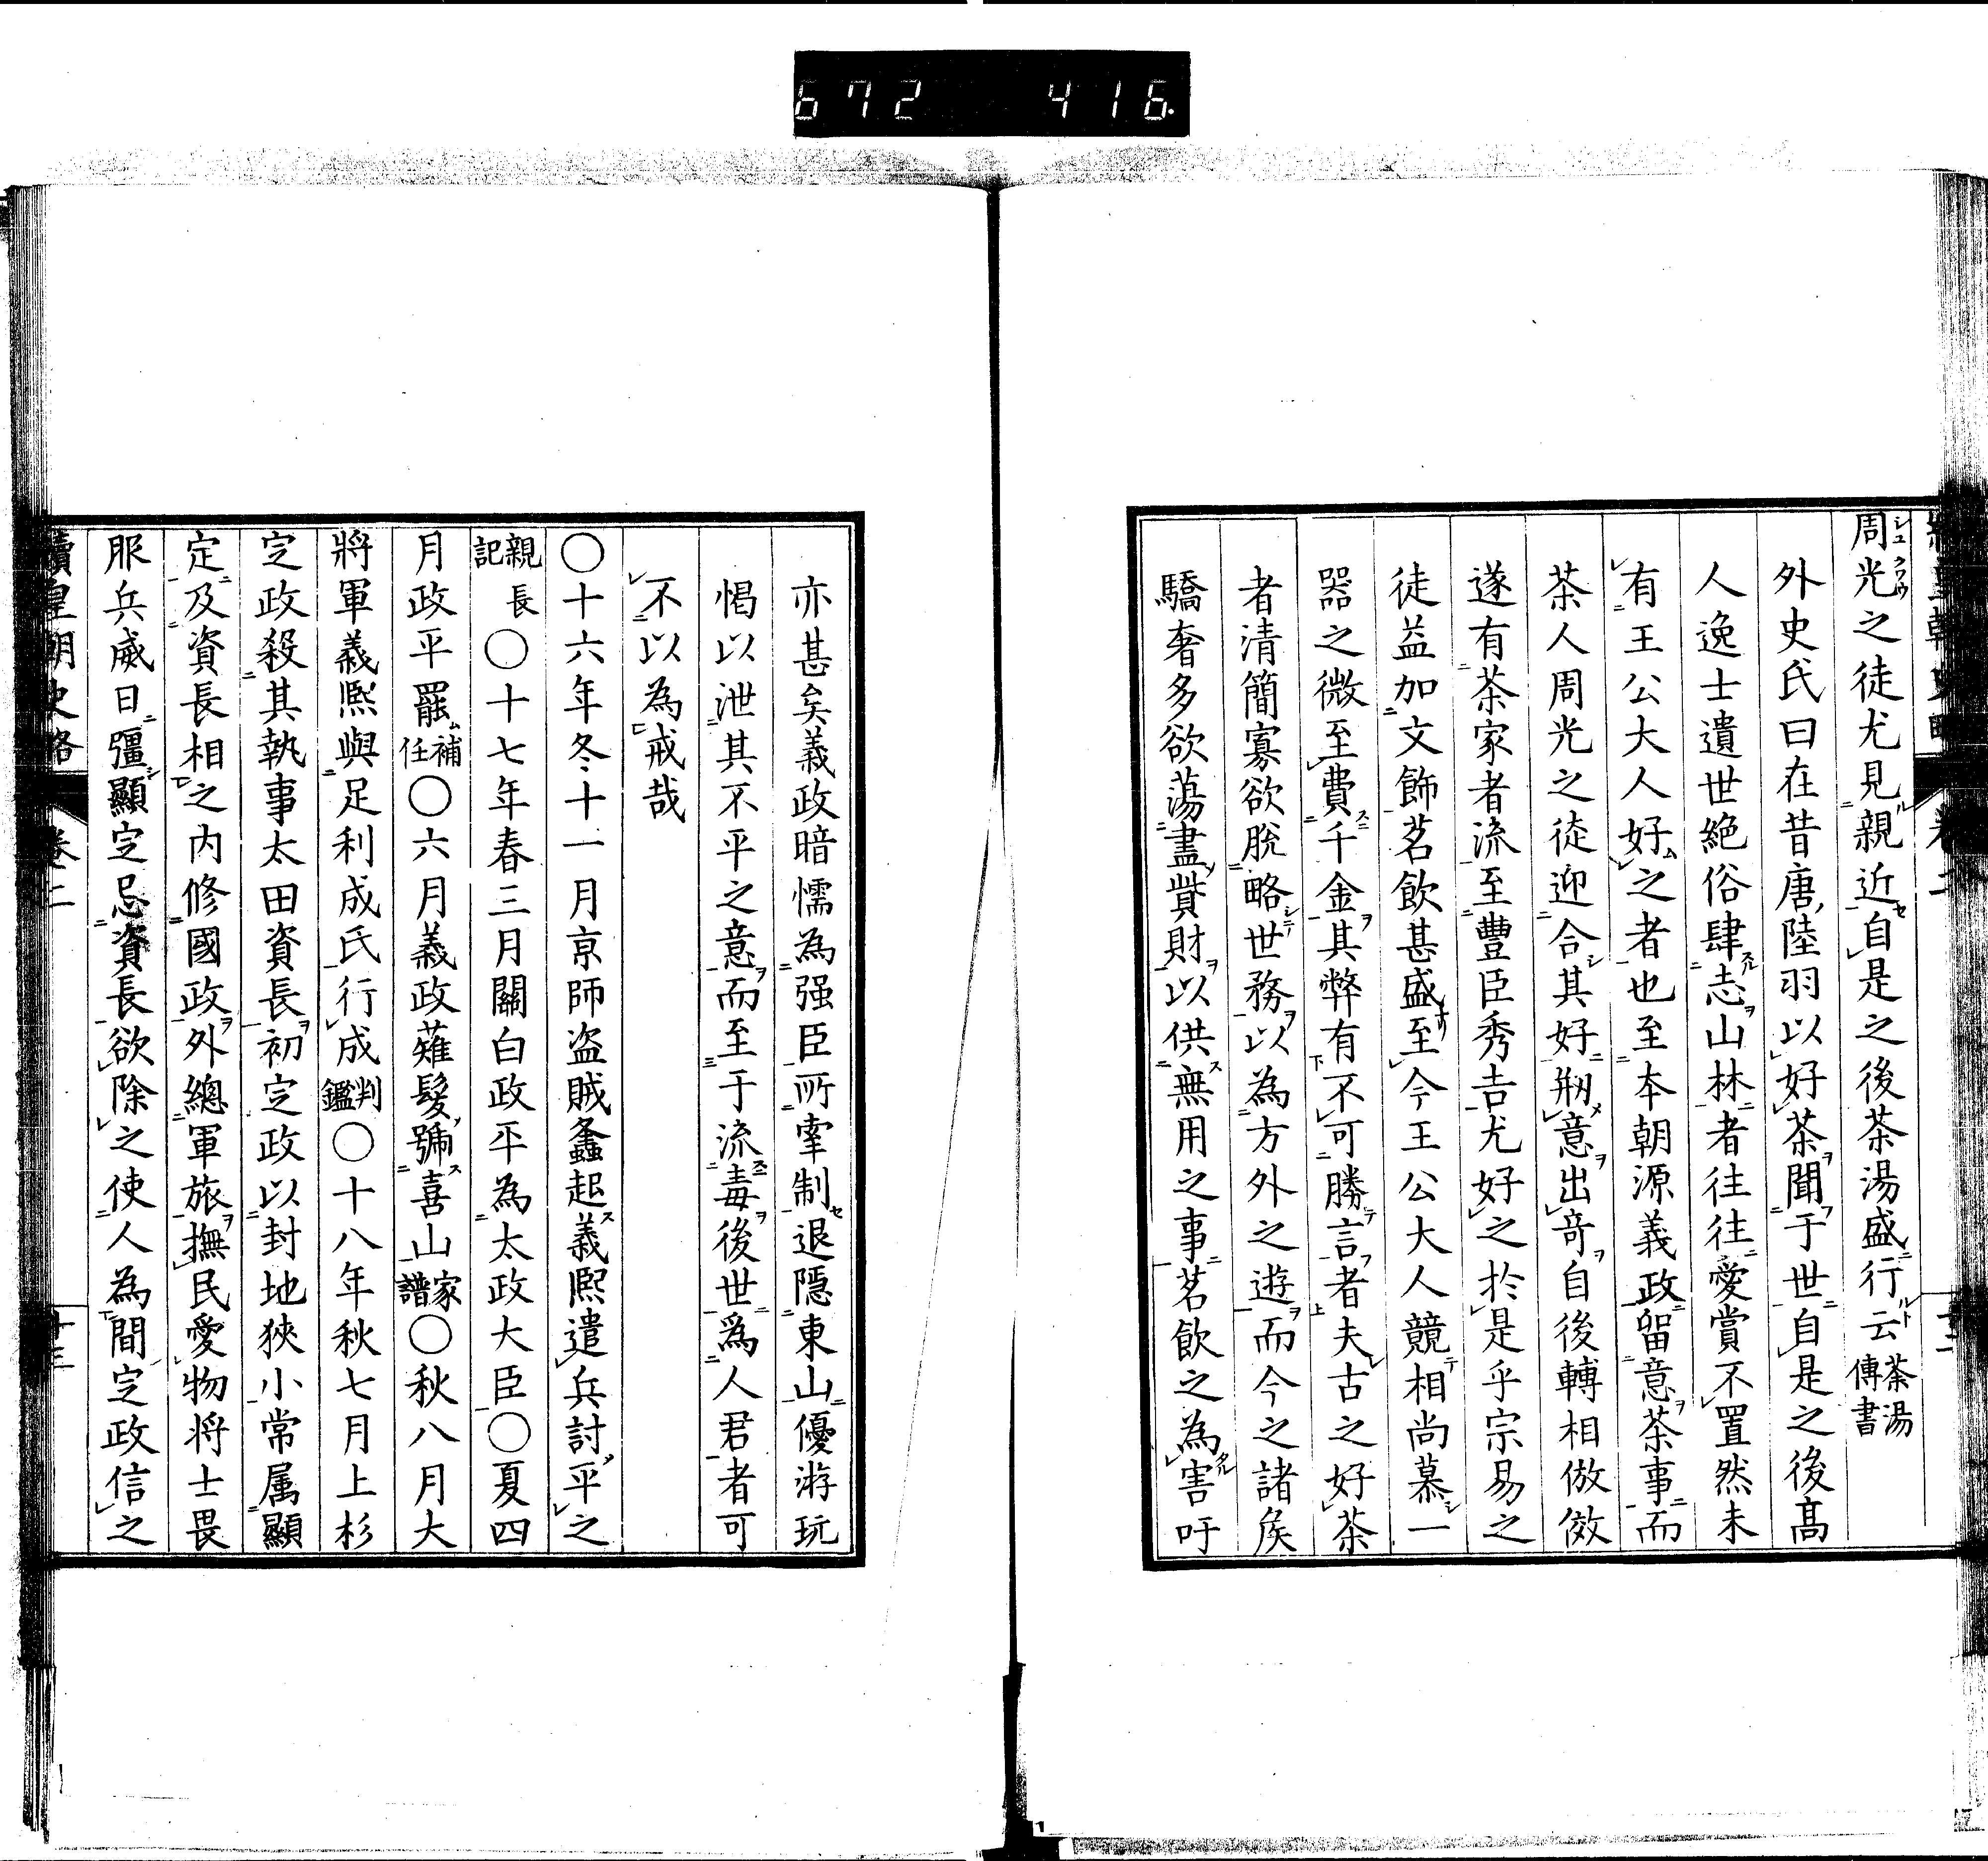 672 416
周光之徒尤見親近自是之後茶湯盛行云茶湯傳書
外史氏曰在昔唐陸羽以好茶聞于世自是之後髙
人逸士遺世絶俗肆志山林者往往愛賞不置然未
有王公大人好之者也至本朝源義政留意茶事而
茶人周光之徒迎合其好刱意出竒自後轉相倣傚
遂有茶家者流至豐臣秀吉尤好之於是乎宗易之
徒益加文飾茗飲甚盛至今王公大人競相尚慕一
器之微至費千金其弊有不可勝言者夫古之好茶
者清簡寡欲脫略世務以為方外之遊而今之諸矦
驕奢多欲蕩盡貲財以供無用之事茗飲之為害吁
亦甚矣義政暗懦為强臣所牽制退隱東山優游玩
愒以泄其不平之意而至于流毒後世爲人君者可
不以為戒哉
〇十六年冬十一月京師盗賊蠭起義熙遣兵討平之
親長記〇十七年春三月關白政平為太政大臣〇夏四
月政平罷補任〇六月義政薙髮號喜山家譜〇秋八月大
將軍義熙與足利成氏行成判鑑〇十八年秋七月上杉
定政殺其執事太田資長初定政以封地狹小常属顯
定及資長相之内修國政外總軍旅撫民愛物将士畏
服兵威日彊顯定忌資長欲除之使人為間定政信之
續皇朝史略 卷二 十三